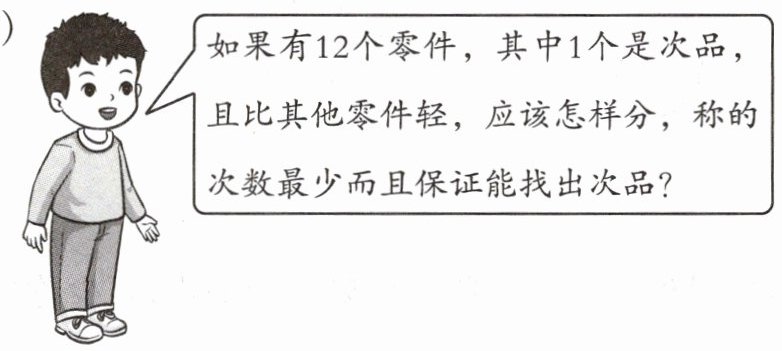 )
如果有12个零件，其中1个是次品，
且比其他零件轻，应该怎样分，称的
次数最少而且保证能找出次品？